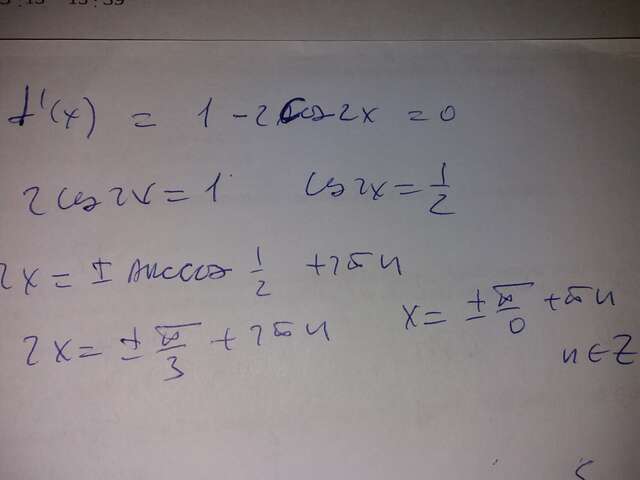 f'(x) = 1 - 2cos2x = 0
2cos2x = 1 cos2x = 1/2
2x = ± arccos 1/2 + 2πn
2x = ± π/3 + 2πn x = ± π/6 + πn
n∈Z